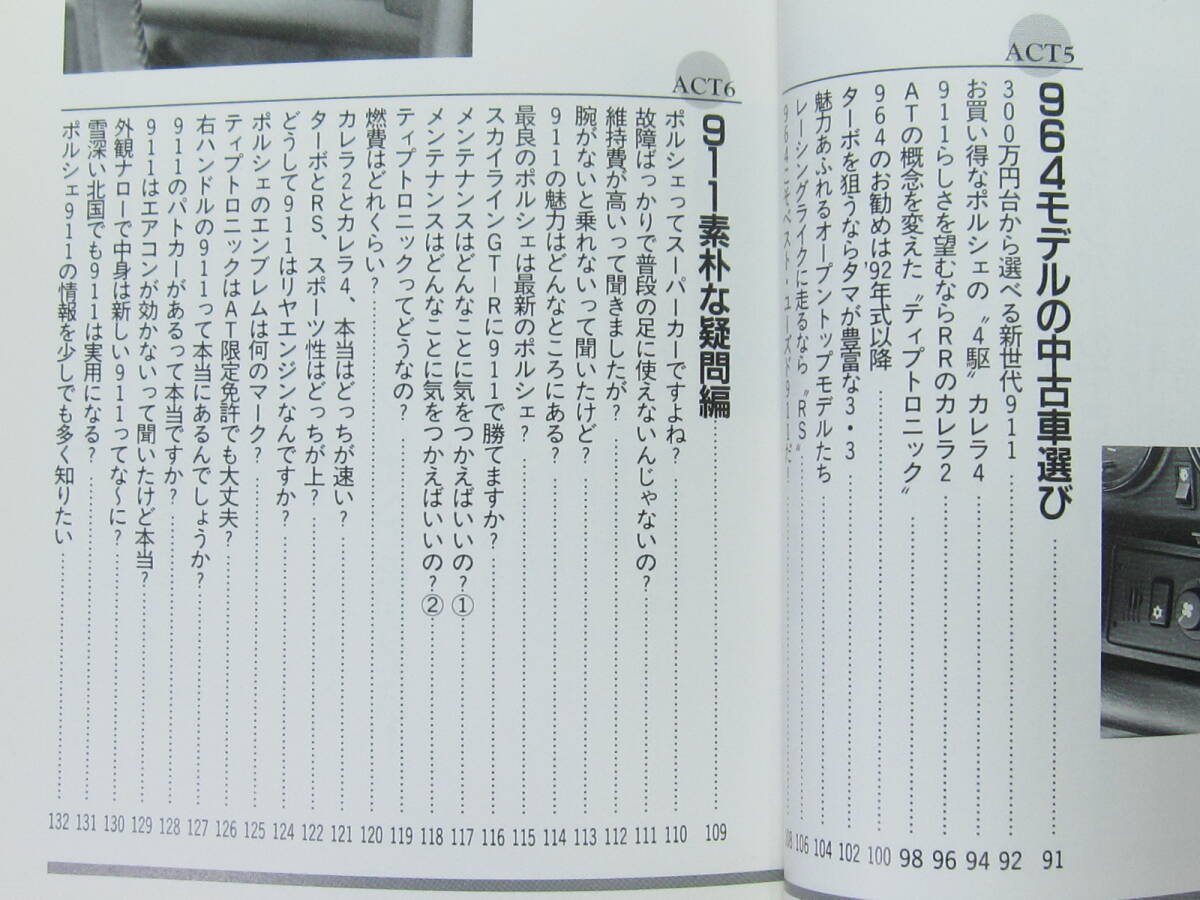 ACT5
964モデルの中古車選び……91
300万円台から選べる新世代911……92
お買い得なポルシェの〝4駆〟カレラ4……94
911らしさを望むならRRのカレラ2……96
ATの概念を変えた〝ティプトロニック〟……98
964のお勧めは'92年式以降……100
ターボを狙うならタマが豊富な3・3……102
魅力あふれるオープントップモデルたち……104
レーシングライクに走るなら〝RS〟……106
964こそベスト・ユーズド911だ!……108
ACT6
911素朴な疑問編……109
ポルシェってスーパーカーですよね?……110
故障ばっかりで普段の足に使えないんじゃないの?……111
維持費が高いって聞きましたが?……112
腕がないと乗れないって聞いたけど?……113
911の魅力はどんなところにある?……114
最良のポルシェは最新のポルシェ?……115
スカイラインGT-Rに911で勝てますか?……116
メンテナンスはどんなことに気をつかえばいいの?①……117
メンテナンスはどんなことに気をつかえばいいの?②……118
ティプトロニックってどうなの?……119
燃費はどれくらい?……120
カレラ2とカレラ4、本当はどっちが速い?……121
ターボとRS、スポーツ性はどっちが上?……122
どうして911はリヤエンジンなんですか?……124
ポルシェのエンブレムは何のマーク?……125
ティプトロニックはAT限定免許でも大丈夫?……126
右ハンドルの911って本当にあるんでしょうか?……127
911のパトカーがあるって本当ですか?……128
911はエアコンが効かないって聞いたけど本当?……129
外観ナローで中身は新しい911ってな〜に?……130
雪深い北国でも911は実用になる?……131
ポルシェ911の情報を少しでも多く知りたい……132